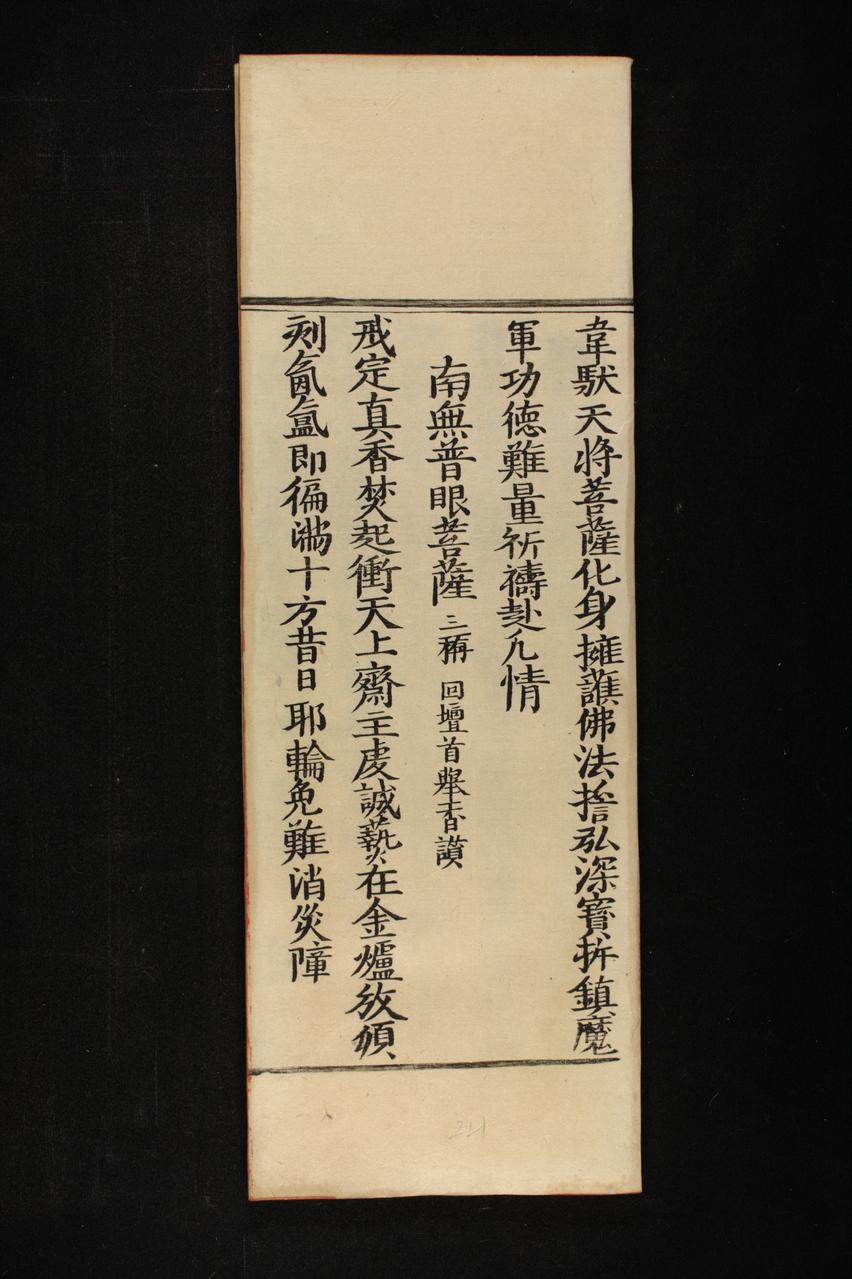 韋馱天将菩薩化身擁護佛法擔弘深寳杵鎮魔
軍功徳難量祈禱赴凢情
南無普眼菩薩 三稱 回壇首舉香讚
戒定真香焚起衝天上齋主虔誠爇在金爐放頃
刻氤氳即徧滿十方昔日耶輪免難消災障
321